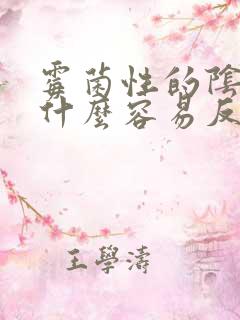 霉菌性的陰
什麼容易反
王學濤